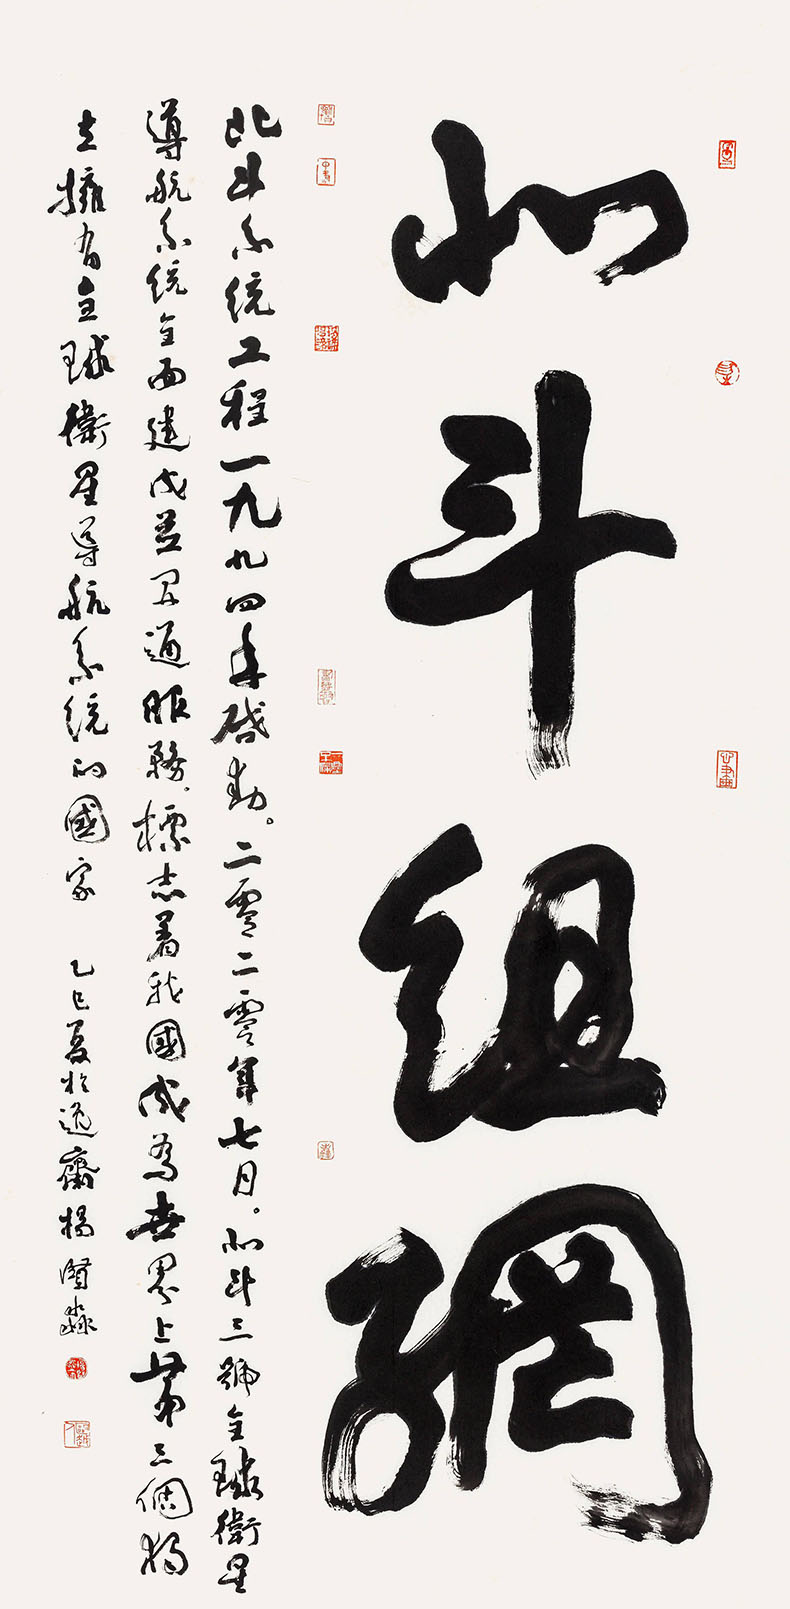 北斗組網
北斗系統工程一九九四年啓動。二零二零年七月。北斗三號全球衛星
導航系統全面建成並開通服務。標志着我國成為世界上第三個獨
立擁有全球衛星導航系統的國家 乙巳夏於逸齋楊賢淼